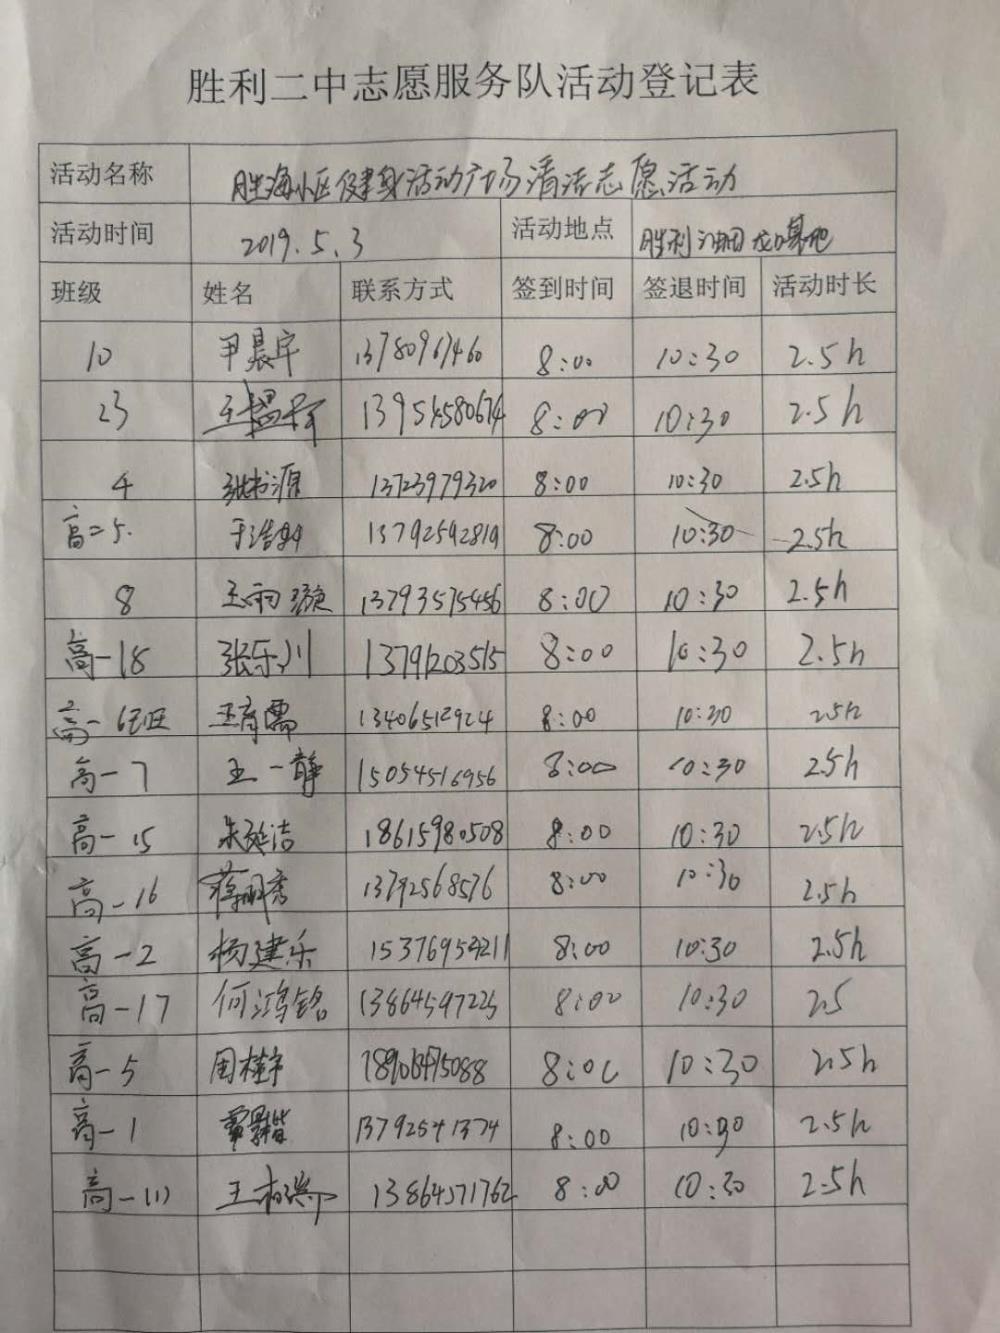 胜利二中志愿服务队活动登记表
活动名称 胜海小区健身活动广场清洁志愿活动
活动时间 2019.5.3 活动地点 胜利油田 基地
班级 姓名 联系方式 签到时间 签退时间 活动时长
10 晨宇 13780967460 8:00 10:30 2.5h
23 王 13954580674 8:00 10:30 2.5h
4 张书源 13723979320 8:00 10:30 2.5h
高二5. 于浩 13792592819 8:00 10:30 2.5h
8 王雨璇 13793575456 8:00 10:30 2.5h
高一18 张乐川 13791203515 8:00 10:30 2.5h
高一 王育儒 13406512924 8:00 10:30 2.5h
高一7 王一静 15054516956 8:00 10:30 2.5h
高一15 朱延洁 18615980508 8:00 10:30 2.5h
高一16 蒋 秀 13792568576 8:00 10:30 2.5h
高一2 杨建乐 15376954211 8:00 10:30 2.5h
高一17 何鸿铭 13864597225 8:00 10:30 2.5
高一5 周 宇 8:00 10:30 2.5h
高一1 8:00 10:30 2.5h
高一(1) 王 13864571762 8:00 10:30 2.5h